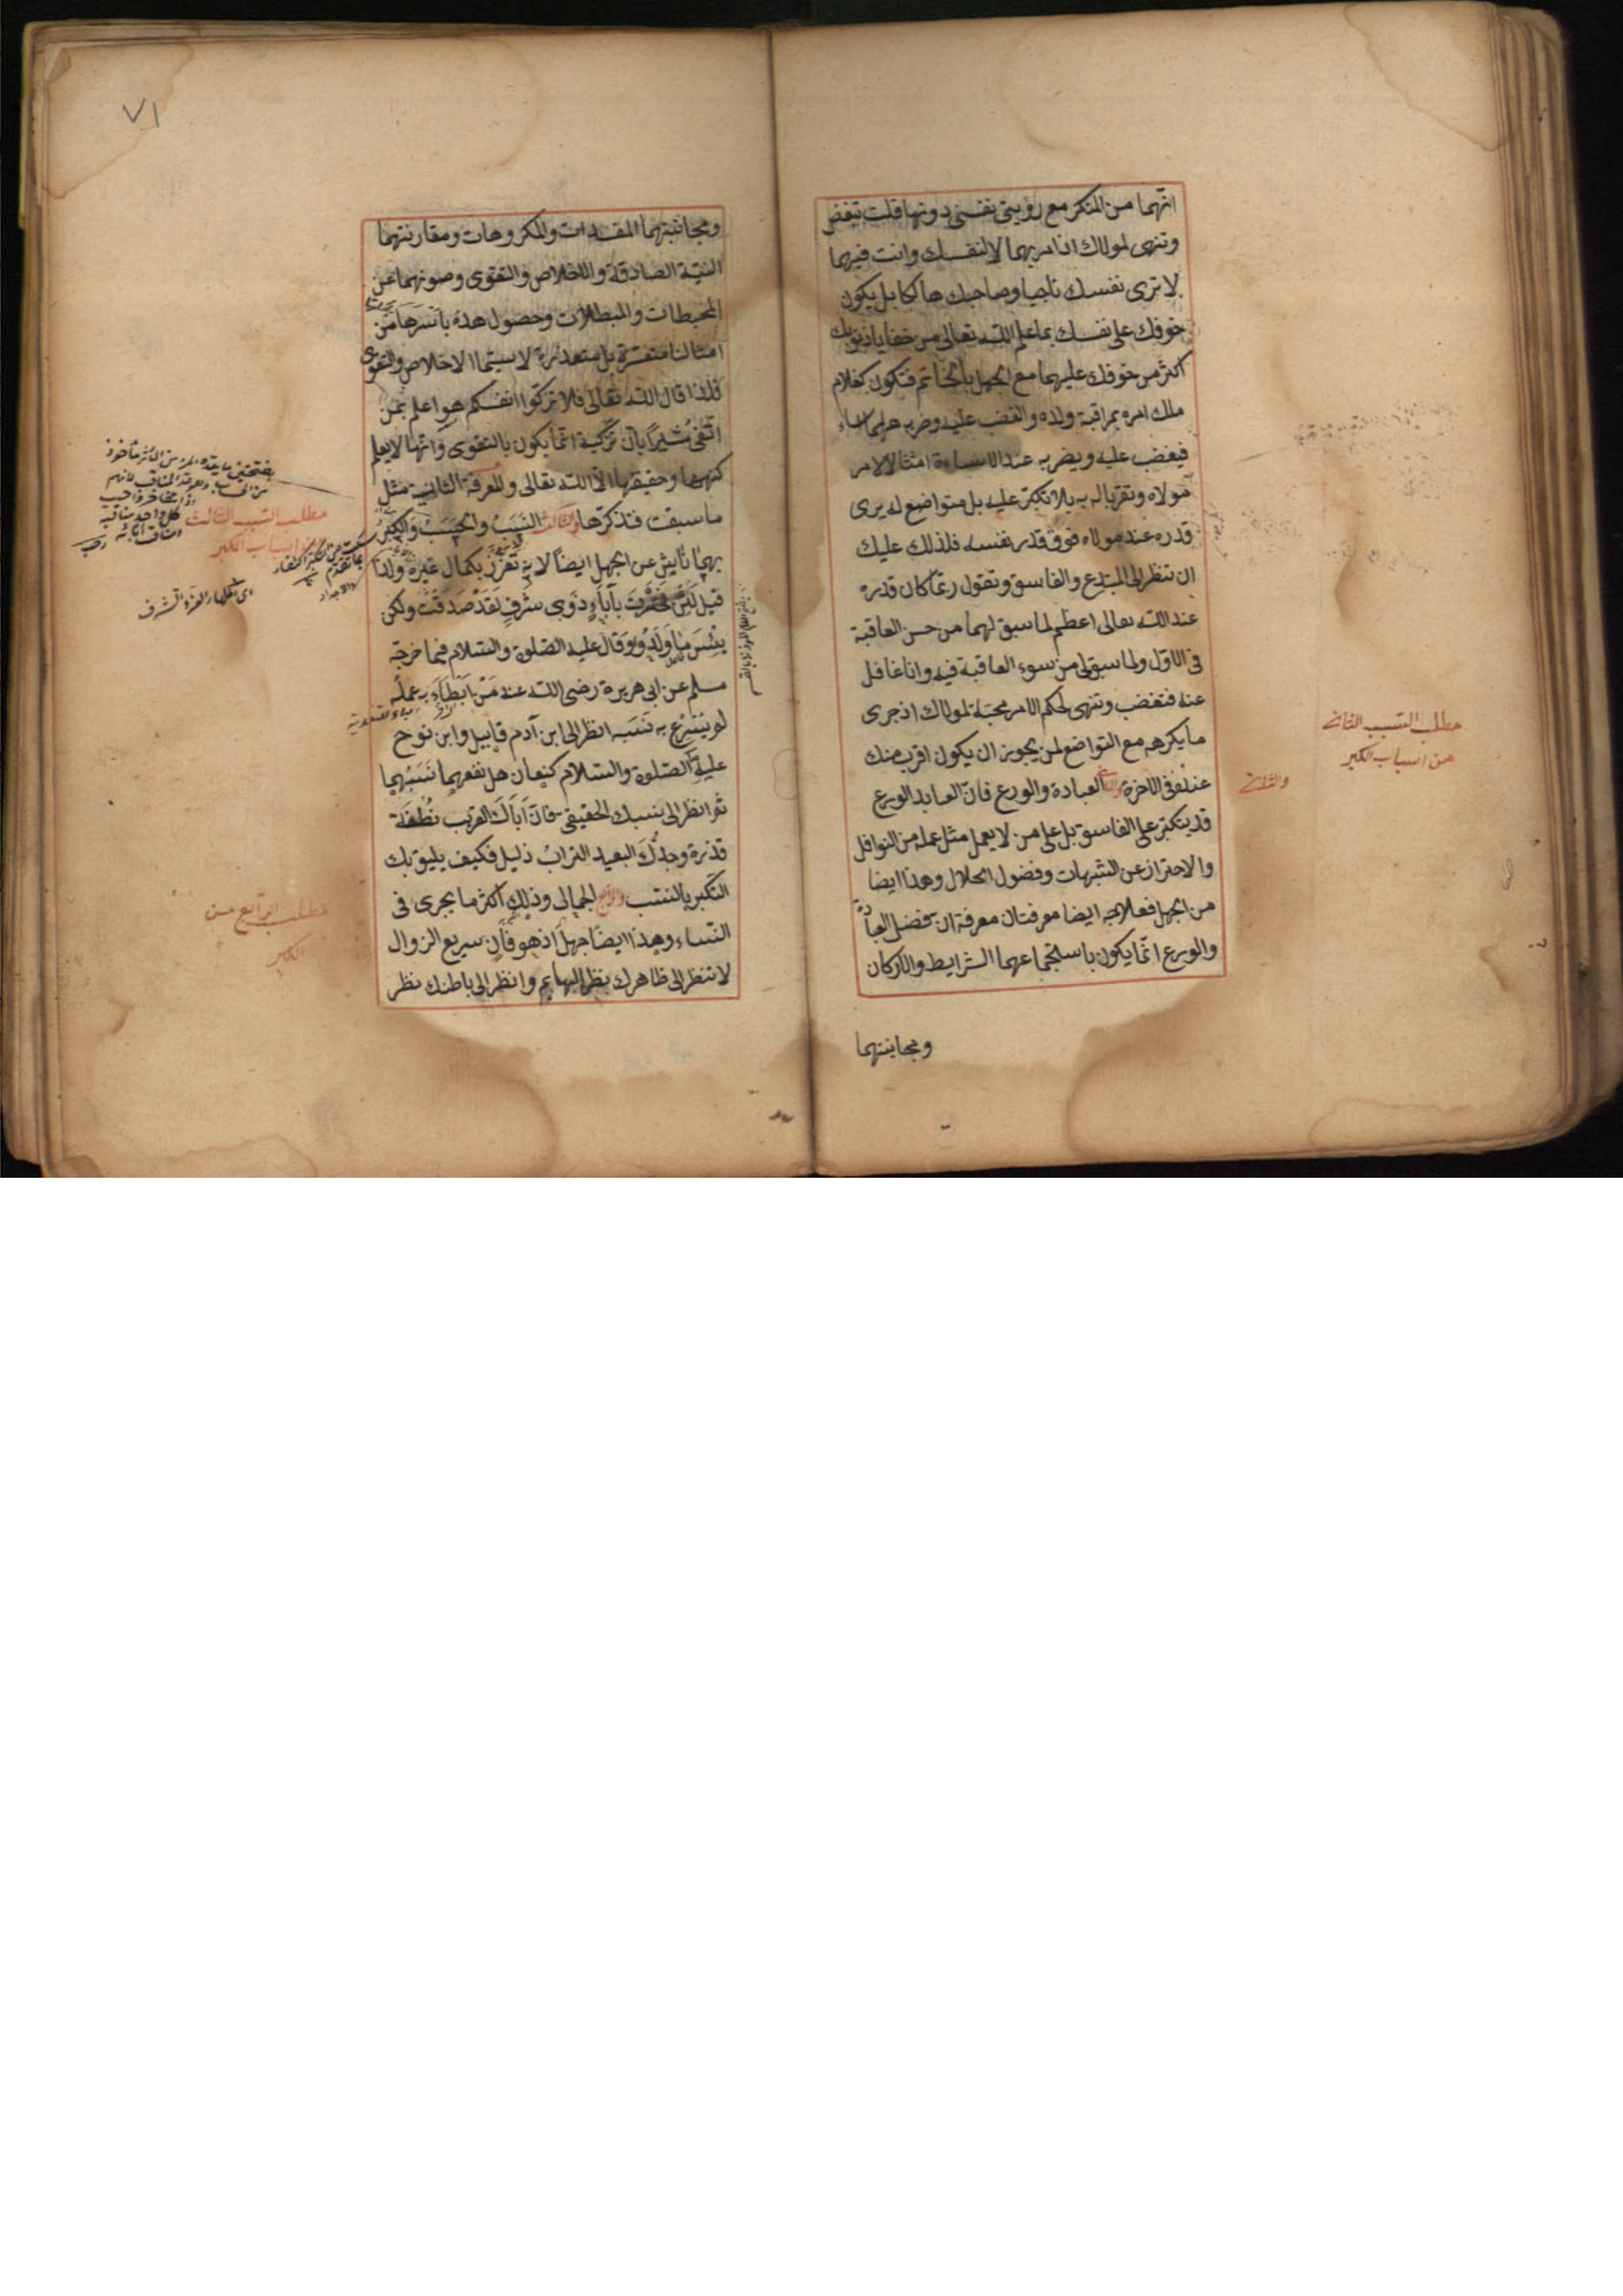 انهما من المنكر مع رؤيتى نفسى دونها قلت تبغض
وتنهى لمولاك اذ امر بهما لا لنفسك وانت فيهما
لا ترى نفسك ناجيا وصاحبك هالكا بل يكون
خوفك على نفسك بما علم الله تعالى من خفايا ذنوبك
اكثر من خوفك عليهما مع الجهل بالخاتمة فتكون كغلام
ملك امره بمراقبة ولده والغضب عليه وضربه مهما اساء
فيغضب عليه ويضربه عند الاساءة امتثالا لامر
مولاه وتقربا له به بلا تكبر عليه بل متواضع له يرى
قدره عند مولاه فوق قدر نفسه فلذلك عليك
ان تنظر الى المبتدع والفاسق وتقول ربما كان قدره
عند الله تعالى اعظم لما سبق لهما من حسن العاقبة
فى الاول ولما سبق لى من سوء العاقبة فيه وانا غافل
عنه فتغضب وتنهى لحكم الامر محبة لمولاك اذ جرى
ما يكرهه مع التواضع لمن يجوز ان يكون اقرب منك
عنده فى الاخرة والثانى العبادة والورع فان العابد الورع
قد يتكبر على الفاسق بل على من لا يعمل مثل عمله من النوافل
والاحتراز عن الشبهات وفضول الحلال وهذا ايضا
من الجهل فعلاجه ايضا معرفتان معرفة ان فضل العبادة
والورع انما يكون باستجماعهما الشرايط والاركان
ومجانبتهما
والثانى
مطلب السبب الثانى
من اسباب الكبر
٧١
ومجانبتهما المفسدات والمكروهات ومقارنتهما
النية الصادقة والاخلاص والتقوى وصونهما عن
المحبطات والمبطلات وحصول هذه باسرها من
امثالنا متعسرة بل متعذرة لا سيما الاخلاص والتقوى
فلذا قال الله تعالى فلا تزكوا انفسكم هو اعلم بمن
اتقى مشيرا بان تزكية انما يكون بالتقوى وانها لا يعلم
كنهها وحقيقتها الا الله تعالى والمعرفة الثانية مثل
ما سبقت فتذكرها والثالث النسب والحسب والكبر
بهما ناشٍ عن الجهل ايضا لانه تعزز بكمال غيره ولذا
قيل لئن فخرت بآباء ذوى شرف لقد صدقت ولكن
بئس ما ولدوا وقال عليه الصلوة والسلام فيما خرجه
مسلم عن ابى هريرة رضى الله عنه من ابطاء به عمله
لم يسرع به نسبه انظر الى ابن آدم قابيل وابن نوح
عليه الصلوة والسلام كنعان هل نفعهما نسبهما
ثم انظر الى نسبك الحقيقى فان اباك القريب نطفة
قذرة وجدك البعيد التراب ذليل فكيف يليق بك
التكبر بالنسب والرابع الجمالى وذلك اكثر ما يجرى فى
النساء وهذا ايضا جهل اذ هو فان سريع الزوال
لا تنظر الى ظاهرك نظر البهايم وانظر الى باطنك نظر
مطلب السبب الثالث
من اسباب الكبر
اى اظهار العزة والشرف
مطلب الرابع من
الكبر